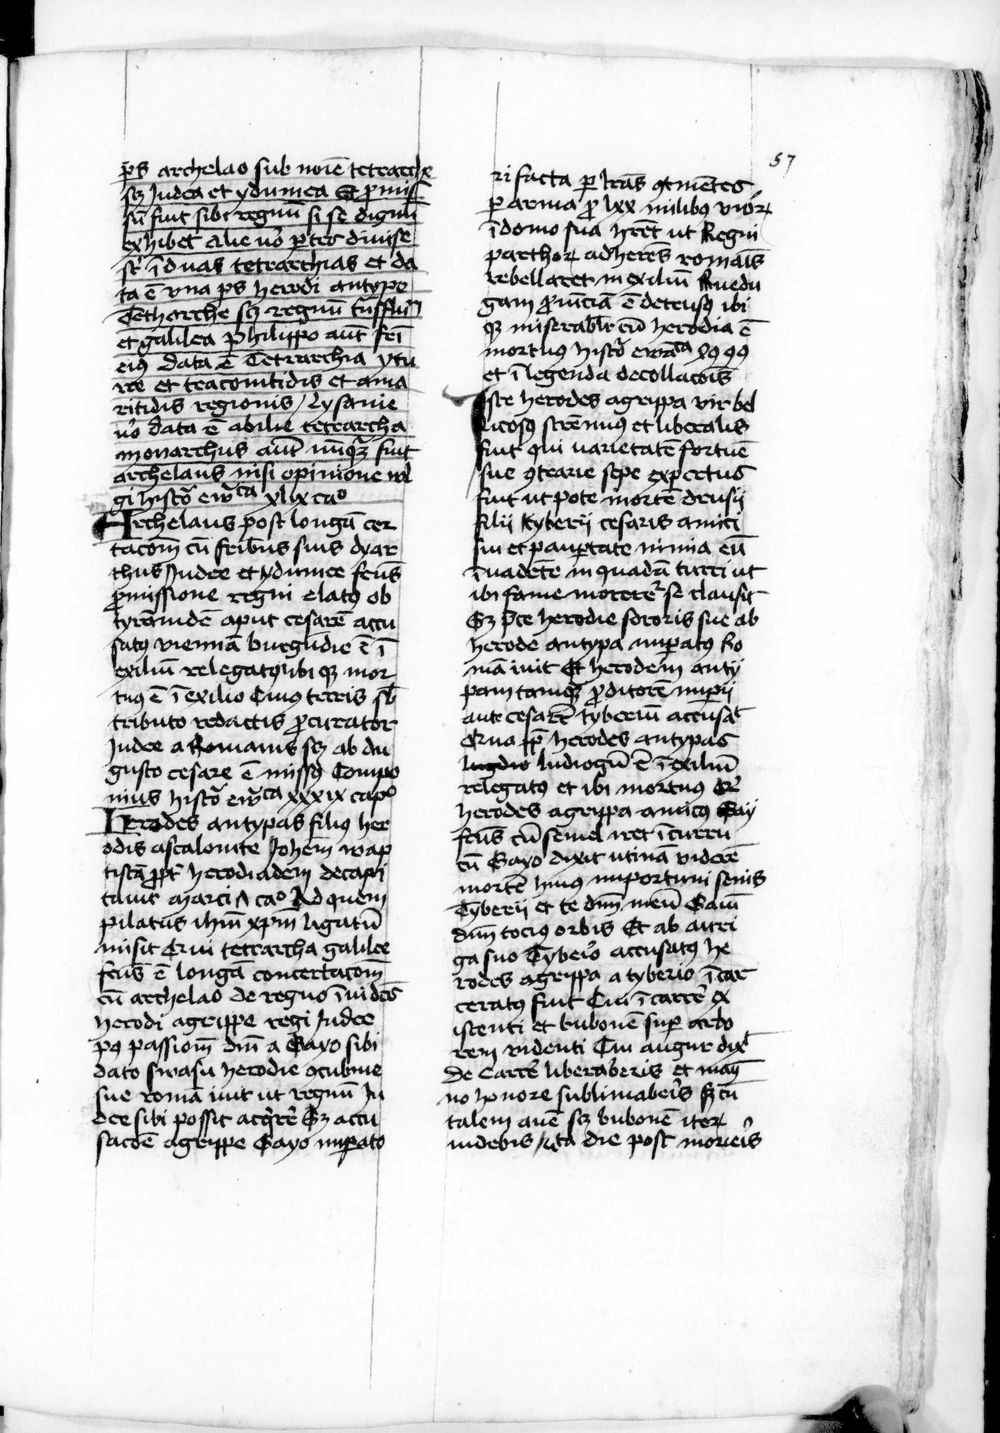 57
ps archelao sub noīe tetrarchie
scz Judea et ydumea Et promis
sū fuit sibi regnū si se dignū
exhibet Alie vo ptes diuise
st ī duas tetrarchias et da
ta ē vna ps herodi antype
Tethrarche scz regnū
et galilea Philippo aut fri
eiꝰ data ē Tetrarchia ytu
ree et traconitidis et ama
ritidis regionis / Lysanie
vo data ē abilie tetrarcha
monarchus aut nūqz fuit
archelaus nisi opinione wl
gi histo xlix cao
Archelaus post longā cer
tacoem cū fribus suis
Judee et ydumee fcūs
promissione regni elatꝰ ob
tyrānidē aput cesarē accu
satꝰ viennam burgūdie ē ī
exiliū relegatꝰ ibi qz mor
tuꝰ ē ī exilio Cuius terris sb
tributo redactis procurator
Judee a Romanis scz ab Au
gusto cesare ē missꝰ Compo
nius histo xxxix capo
Herodes antypas filiꝰ her
odis ascalonite Johēm wap
tistā propt herodiadem decapi
tauit marci cao Ad quem
pilatus ihm xpm ligatū
misit Qui tetrarcha galilee
fcūs ē longa concertacoem
cū archelao de regno īuidēs
herodi agrippe regi Judee
pꝰ passioem dni a Gayo sibi
dato swasu herodie ꝯcubine
sue romā iuit ut regnū Ju
dee sibi possit acqrere Sz accu
sacoē agrippe Gayo imperato
ri facta per lras ꝯtinētes
ꝙ arma pro lxx milibꝰ viroꝝ
ī domo sua hret ut Regni
parthoꝝ adherēs romais
rebellaret in exiliū
gam prouīciā ē detrusꝰ ibi
qz miserabilr cū herodia ē
mortuꝰ histo
et ī legenda decollacois
Iste herodes agrippa vir bel
licosꝰ strēnuus et liberalis
fuit qui uarietatē fortune
sue ꝯtrarie sepe expertus
fuit ut pote mortē drusii
filii tyberii cesaris amici
sui et paupertate nimia eū
īuadēte in quadā turri ut
ibi fame moreret se clausit
Sz pce herodie sororis sue ab
herode antypa imperatꝰ Ro
mā iuit Et herodem anty
pam tamqz proditorē impii
ante cesarē tyberiū accusat
Qua herodes antypas
lugdio ludiogū ē ī exiliū
relegatꝰ et ibi mortuus
herodes agrippa amicꝰ Gay
fcūs cū semel iret ī curru
cū Gayo dixit utinā viderē
mortē huius importuni senis
Tyberii et te dnm meū Gaiū
dnm tocius orbis Et ab auri
ga suo Tyberio accusatꝰ he
rodes agrippa a tyberio īcar
ceratꝰ fuit Cui ī carcere ex
istenti et bubonē super
rem videnti Cui augur dixit
De Carcere liberaberis et mag
no honore sublimaberis Sz cū
talem auē scz bubonē iteꝝ
uidebis die post morieris